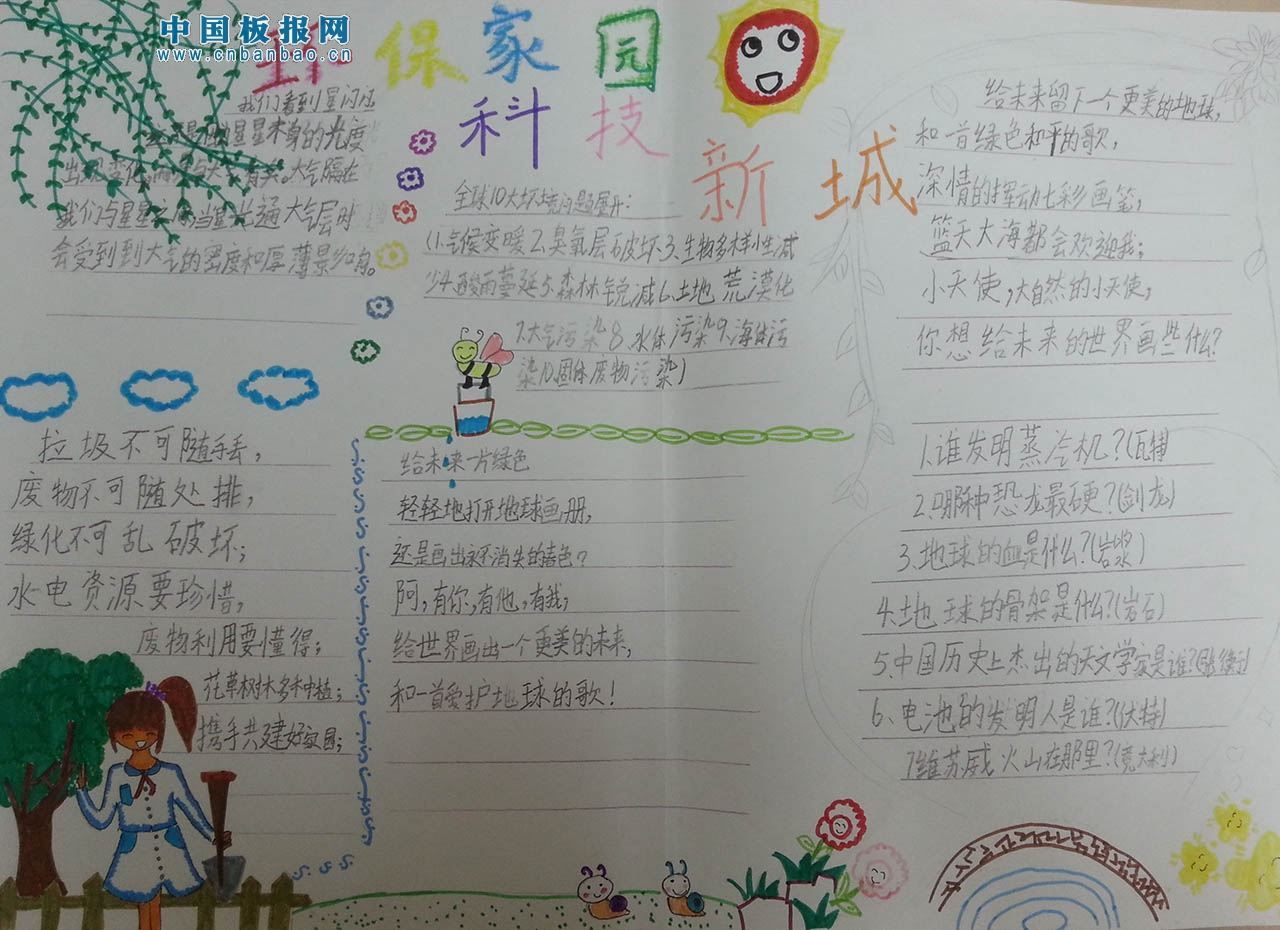 中国板报网
www.cnbanbao.cn
环保家园
科技
新城
我们看到星闪烁
星星本身的光度
出现变化,而是与大气有关。大气隔在
我们与星星之间,当星光通大气层时
会受到到大气的密度和厚薄影响。
垃圾不可随手丢,
废物不可随处排,
绿化不可乱破坏;
水电资源要珍惜,
废物利用要懂得;
花草树木多种植;
携手共建好家园;
全球10大环境问题展开:
(1.气候变暖2.臭氧层破坏3.生物多样小生减
少4.酸雨蔓延5.森林锐减6.土地荒漠化
7.大气污染8.水体污染9.海体污
染10.固体废物污染)
给未来一片绿色
轻轻地打开地球画册,
还是画出永不消失的春色?
阿,有你,有他,有我;
给世界画出一个更美的未来,
和一首爱护地球的歌!
给未来留下一个更美的地球,
和一首绿色和平的歌,
深情的挥动七彩画笔,
篮天大海都会欢迎我;
小天使,大自然的小天使,
你想给未来的世界画些什么?
1.谁发明蒸汽机?(瓦特)
2.哪种恐龙最硬?(剑龙)
3.地球的血是什么?(岩浆)
4.地球的骨架是什么?(岩石)
5.中国历史上杰出的天文学家是谁?(张衡)
6.电池的发明人是谁?(伏特)
7维苏威火山在那里?(意大利)